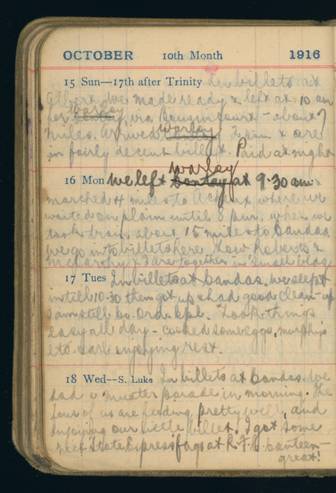 OCTOBER 10th Month 1916
15 Sun—17th after Trinity In billets at
Albert. We made ready & left at 10 am
for Warloy via Bouzincourt - about 7
miles. Arrived Warloy
in fairly decent billet. Paid at night
Warloy
16 Mon We left at 9.30 am
marched 4 miles to where
waited on plain until 8 p.m. when we
took train about 15 miles to Candas
we go into billets here. Low Roberts &
I are together in small
17 Tues In billets at Candas. We slept
in till 10.30 then got up & had good clean-up
I am still Co. Ord. Cpl. Took things
easy all day - cooked some eggs,
etc. Sarl enjoying rest.
18 Wed—S. Luke In billets at Candas. We
had a muster parade in morning. The
four of us are feeding pretty well, and
enjoying our little billet. I got some
State Express fags at R.F.C. canteen -
great!